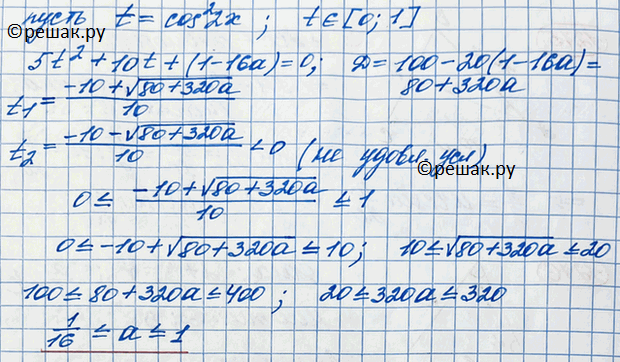 ©решак.ру
пусть t = cos²2x ; t ∈ [0; 1]
5t² + 10t + (1-16a) = 0; D = 100 - 20(1-16a) =
80 + 320a
t₁ = (-10 + √(80+320a))/10
t₂ = (-10 - √(80+320a))/10 < 0 (не удовл. усл)
©решак.ру
0 ≤ (-10 + √(80+320a))/10 ≤ 1
0 ≤ -10 + √(80+320a) ≤ 10; 10 ≤ √(80+320a) ≤ 20
100 ≤ 80 + 320a ≤ 400 ; 20 ≤ 320a ≤ 320
1/16 ≤ a ≤ 1
©решак.ру